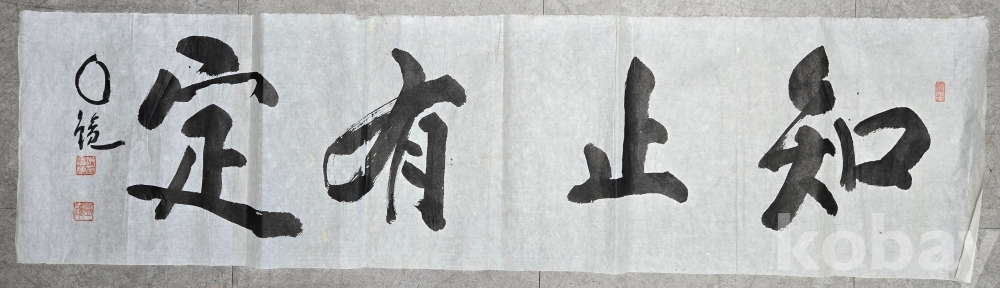 知止有定
○鏡
kobay